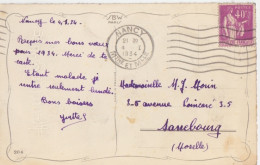 Nancy, le 4.1.34.
Reçois mes bons vœux
pour 1934. Merci de ta
carte.
Etant malade j'ai
rentre seulement lundi.
Bons baisers
Yvette
NANCY
1934
Mademoiselle M. J. Morin
avenue Poincaré
Sarrebourg
(Moselle)
40c